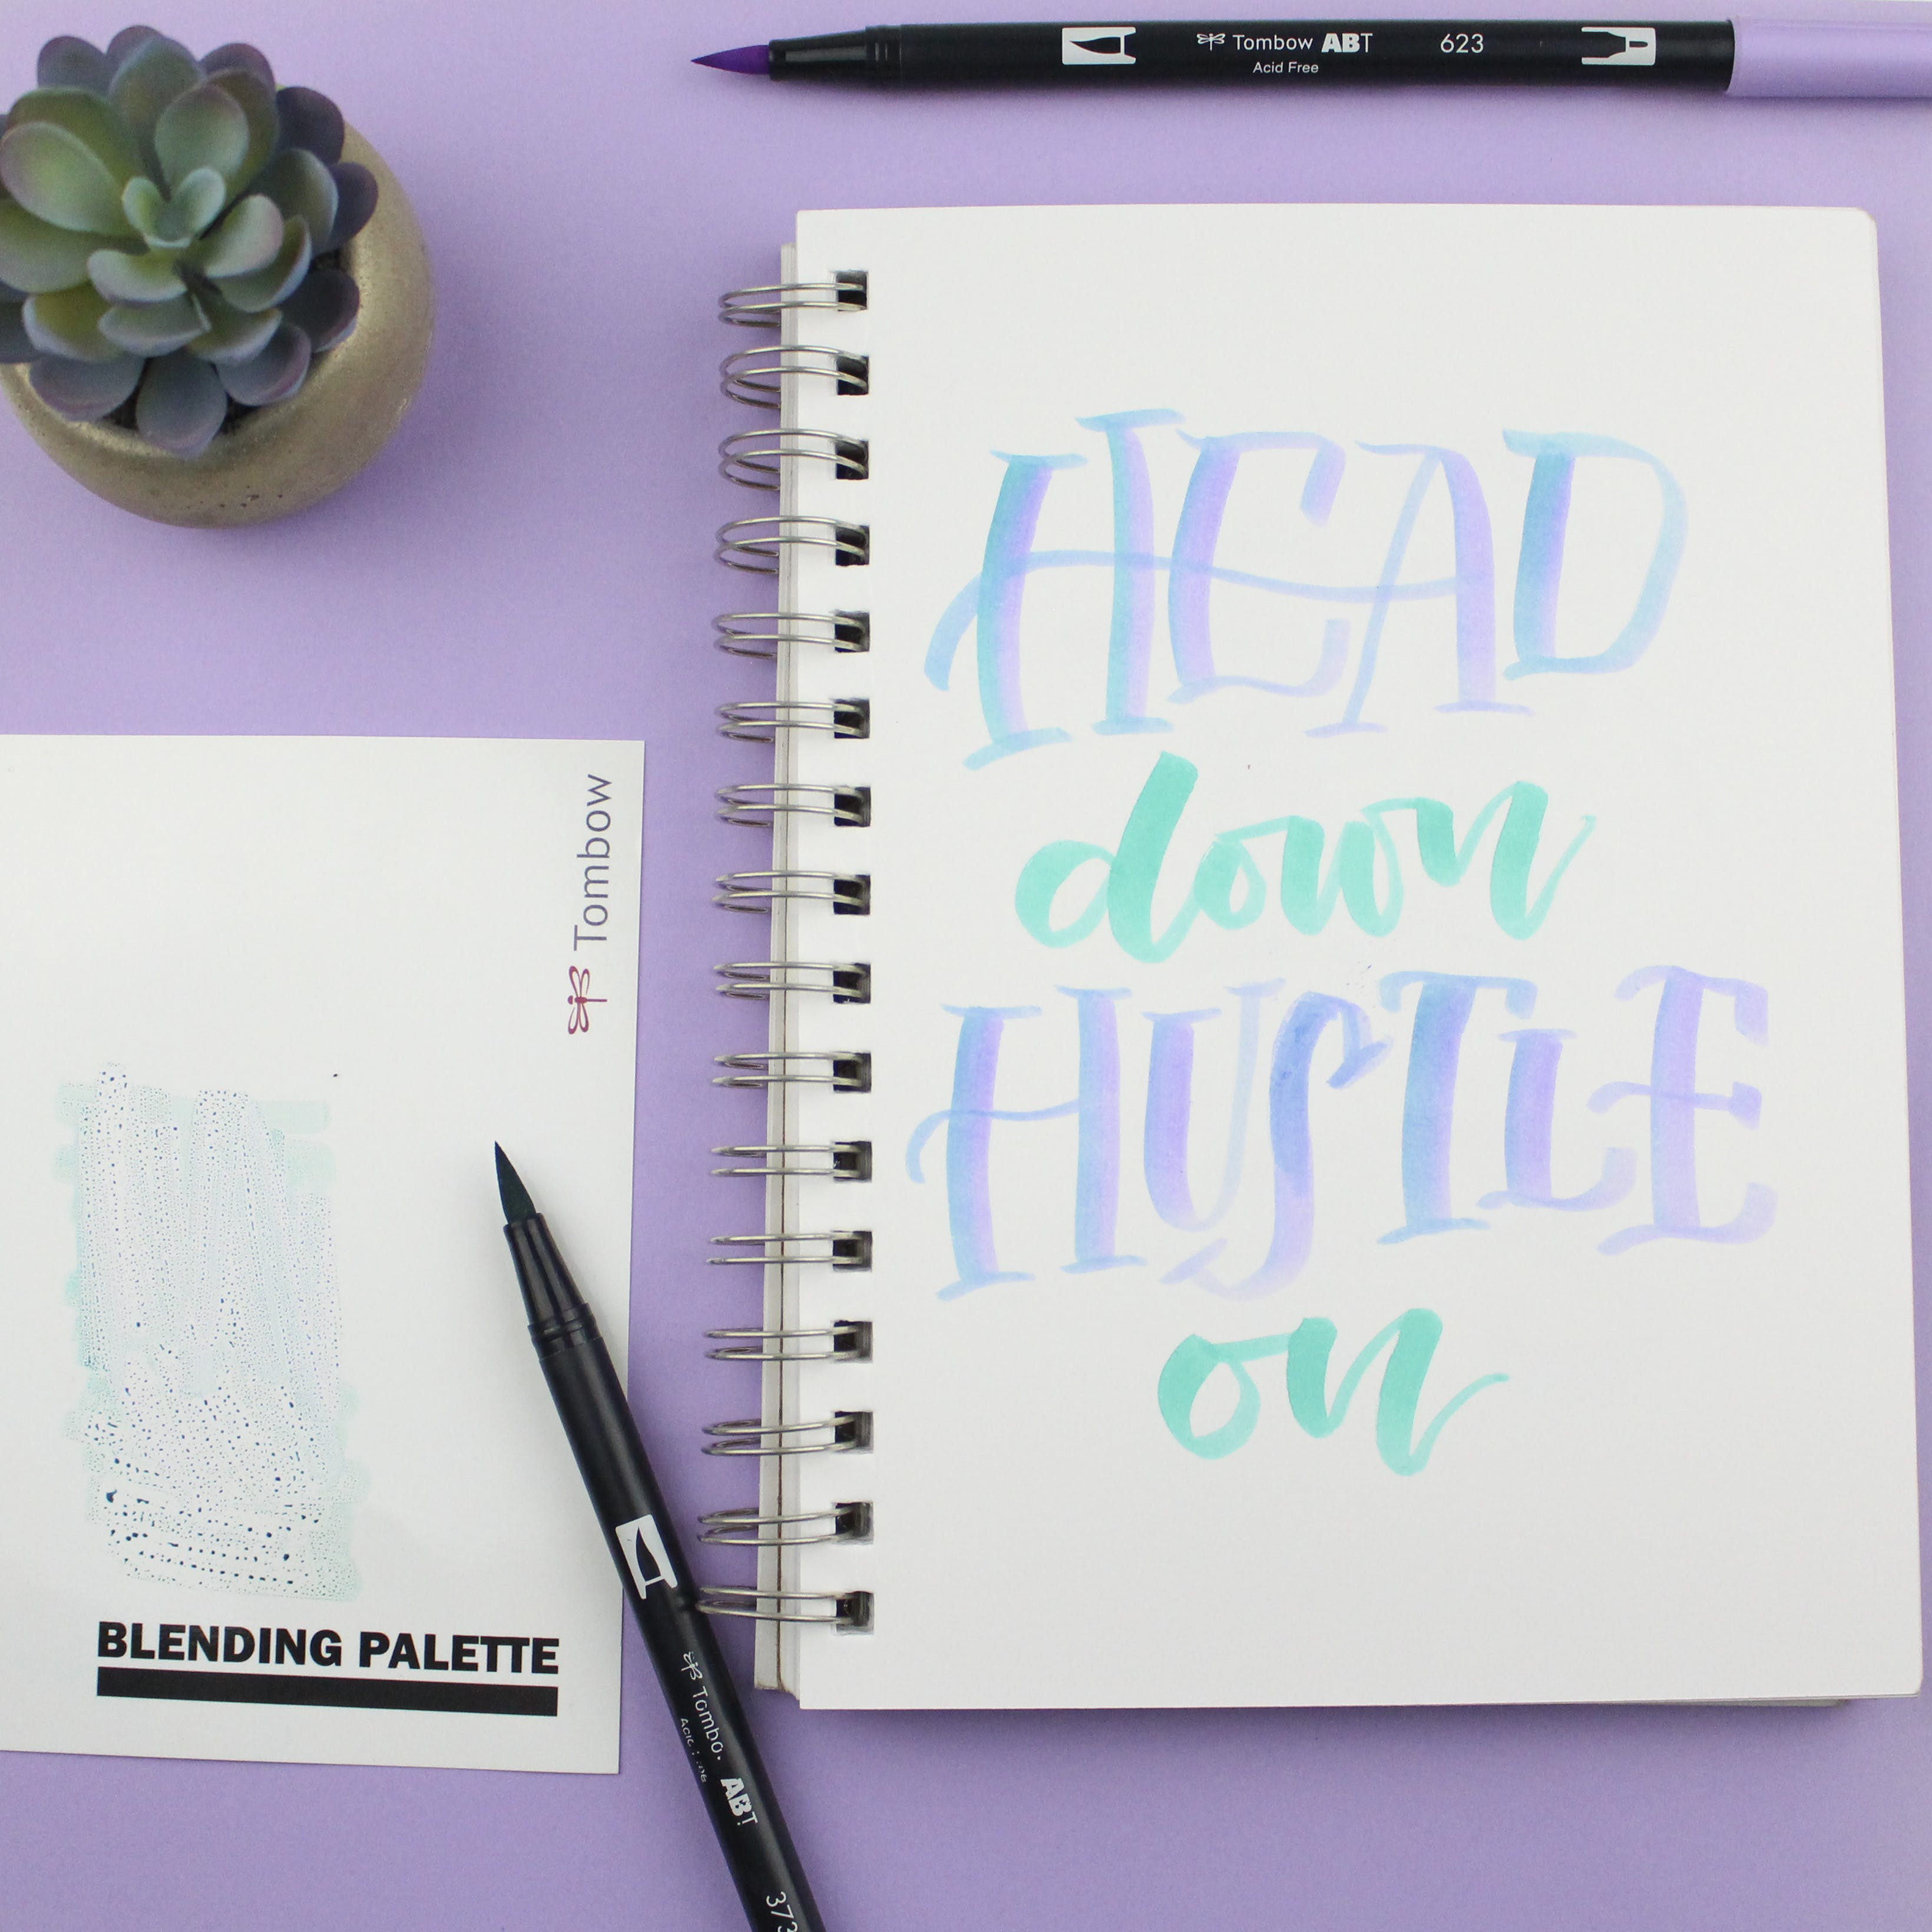 Tombow ABT 623
Acid Free
HEAD
down
HUSTLE
on
Tombow
BLENDING PALETTE
Tombo ABT 373